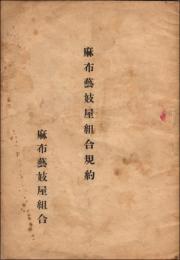 麻布藝妓屋組合規約
麻布藝妓屋組合